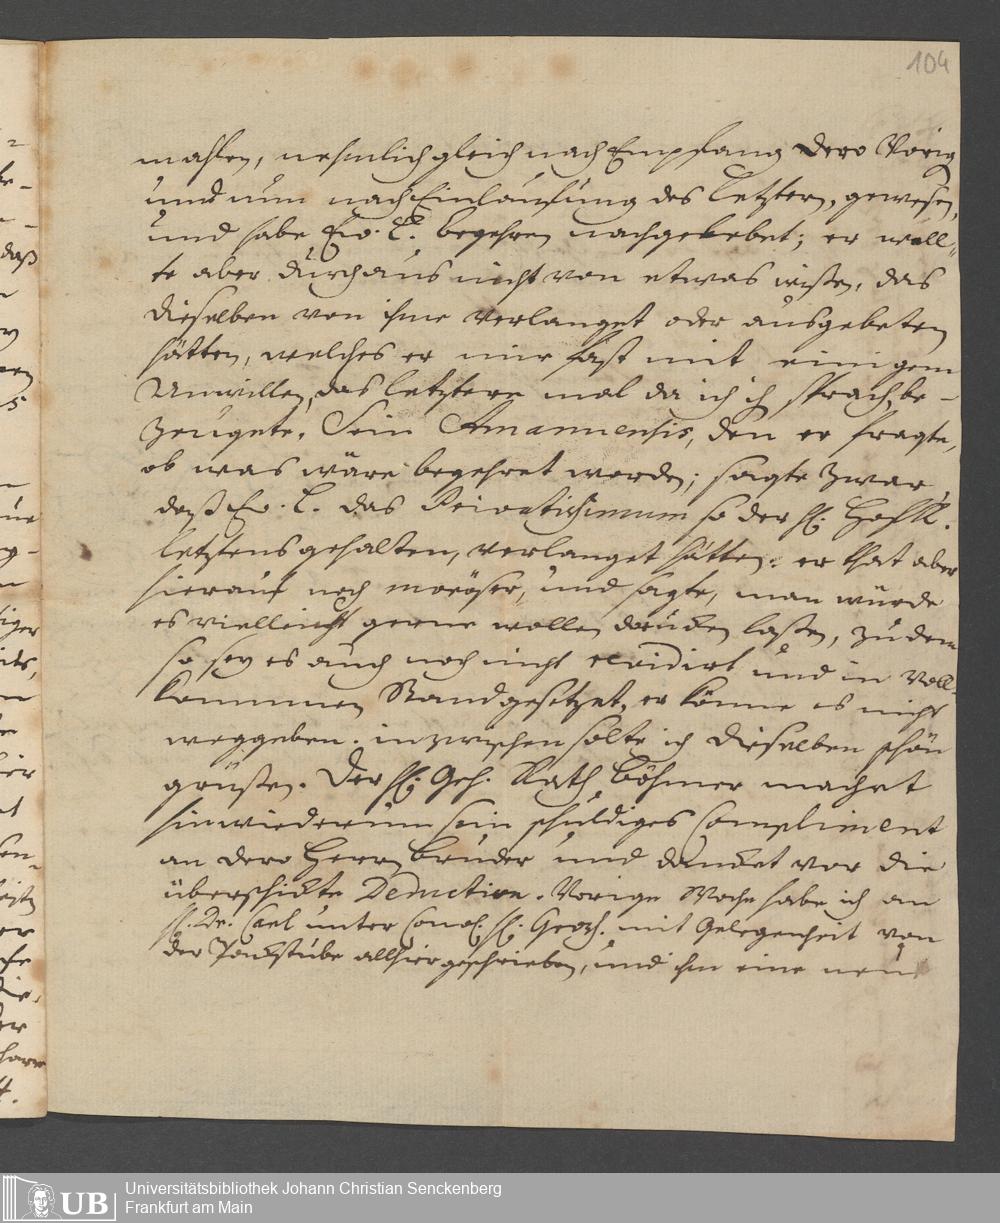 104
mahlen, nehmlich gleich nach Empfang dero Vorig
und nun nach Einlauffung des letztern, gewesen,
und habe Ew. L. begehren nachgelebet; er woll=
te aber durchaus nicht von etwas wißen, das
dieselben von ihme verlanget oder ausgebeten
hätten, welches er mir fast mit einigem
Unwillen, das letztere mal da ich ihn sprach, be-
zeugete. Sein Amanuensis, den er fragte,
ob was wäre begehret worden; sagte zwar,
daß Ew. L. das Privatissimum so der H. HofR.
letztens gehalten, verlanget hätten: er that aber
hierauf noch moroser, und sagte, man würde
es vielleicht gerne wollen drucken laßen, zu dem
so sey es auch noch nicht revidirt und in Voll-
kommnen Stand gesetzet, er könne es nicht
weggeben. inzwischen solte ich dieselben schön
grüßen. Der H. Geh. Rath Böhmer machet
hinwiederum sein schuldiges Compliment
an dero Herrn Bruder und dancket vor die
überschickte Deduction. Vorige Woche habe ich an
H. Dr. unter H. mit Gelegenheit von
der allhier geschrieben, und ihm eine neue
Universitätsbibliothek Johann Christian Senckenberg
Frankfurt am Main
UB